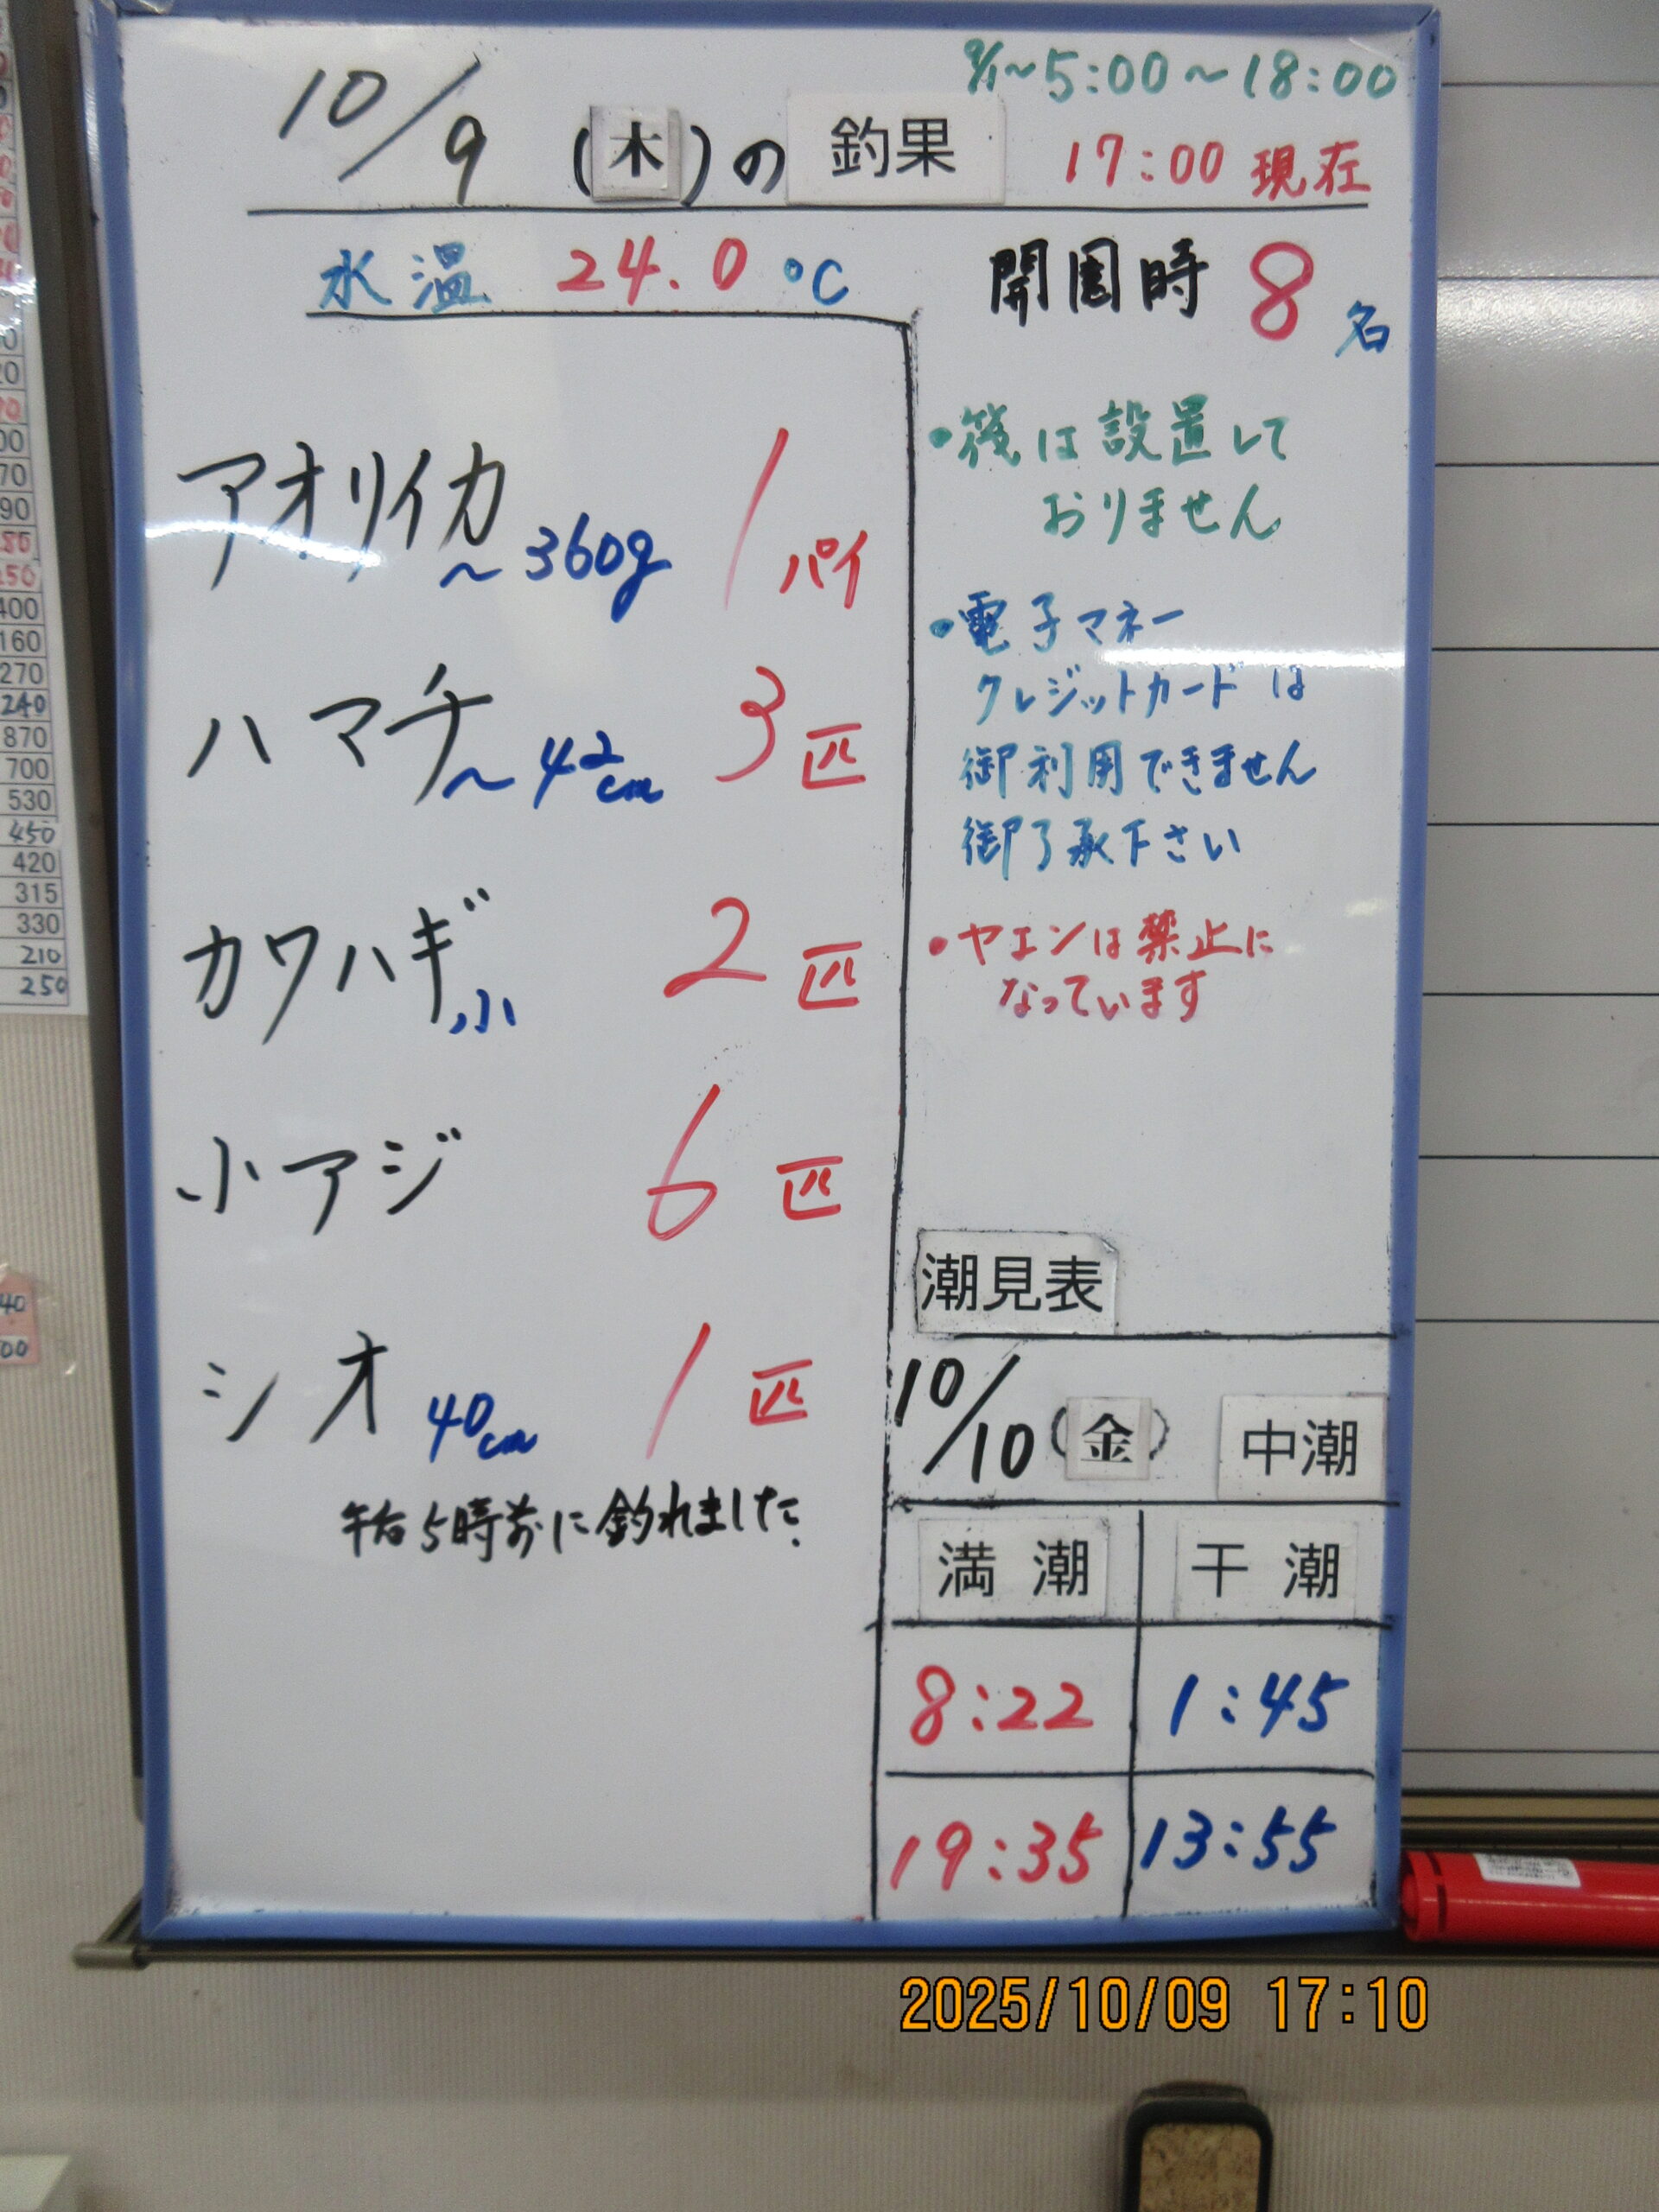 9/1~5:00~18:00
10/9 (木)の 釣果 17:00 現在
水温 24.0 ℃
開園時 8名
アオリイカ ~360g 1パイ
ハマチ ~42cm 3匹
カワハギ 小 2匹
小アジ 6匹
シオ 40cm 1匹
午后5時前に釣れました.
・筏は設置して
おりません
・電子マネー
クレジットカードは
御利用できません
御了承下さい
・ヤエンは禁止に
なっています
潮見表
10/10 (金) 中潮
満潮 干潮
8:22 1:45
19:35 13:55
2025/10/09 17:10
400
160
270
240
870
700
530
450
420
315
330
210
250